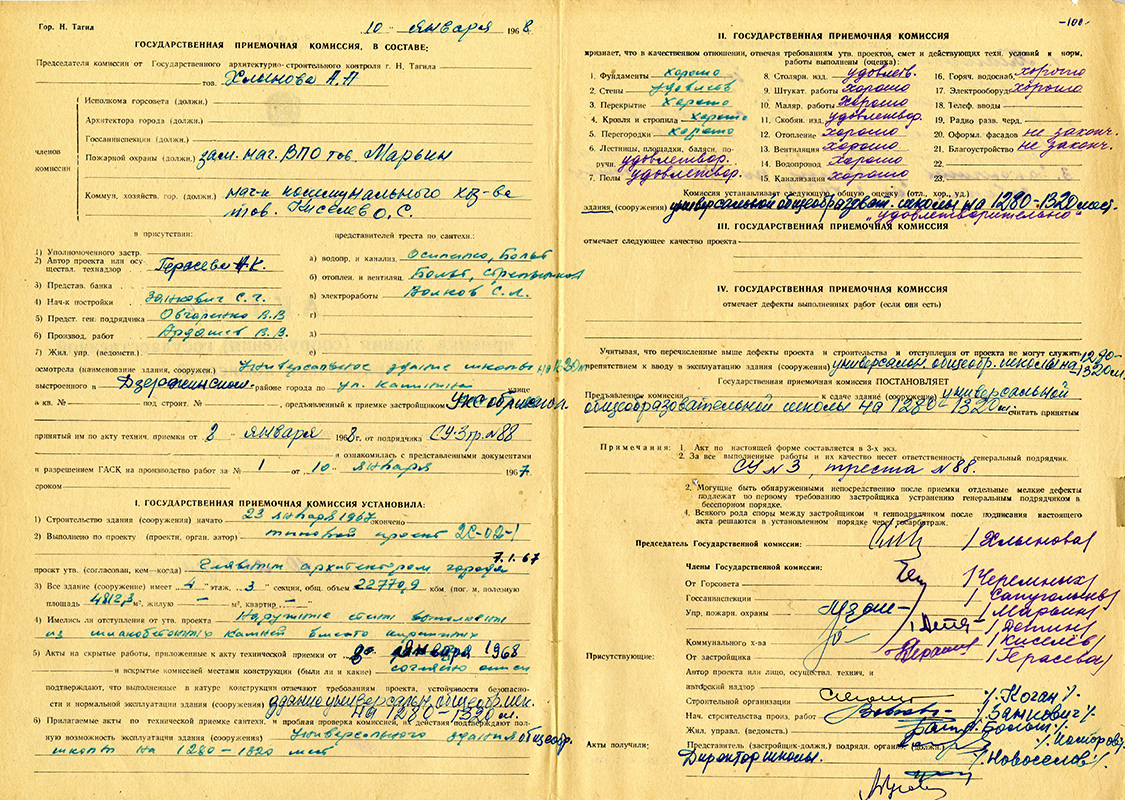 Гор. Н. Тагил
10 " января 1968
ГОСУДАРСТВЕННАЯ ПРИЕМОЧНАЯ КОМИССИЯ, В СОСТАВЕ:
Председателя комиссии от Государственного архитектурно-строительного контроля г. Н. Тагила
тов. Хлынова А.П
членов комиссии
Исполкома горсовета (должн.)
Архитектора города (должн.)
Госсанинспекции (должн.)
Пожарной охраны (должн.) зам. нач. ВПО тов. Марьин
Коммун. хозяйств. гор. (должн.) нач-к коммунального хоз-ва
тов. Киселев О.С.
в присутствии:
представителей треста по сантехн.:
1) Уполномоченного застр.
2) Автор проекта или осуществл. технадзор Герасева К.
3) Представ. банка
4) Нач-к постройки Занкович С.Г.
5) Предст. ген. подрядчика Овчаренко В.В
6) Производ. работ Ардашев В.В.
7) Жил. упр. (ведомств.)
а) водопр. и канализ. Осипенко, Больт
б) отоплен. и вентиляц. Больт,
в) электроработы Волков С.Л.
г)
д)
е)
осмотрела (наименование здания, сооружен.) Универсальное здание школы на 1320 м
выстроенного в Дзержинском районе города по ул. Калинина улице
в кв. № под строит. № , предъявленный к приемке застройщиком
принятый им по акту технич. приемки от 8 " января 1968 г. от подрядчика СУ-3 тр. №88
и ознакомилась с представленными документами
и разрешением ГАСК на производство работ за № 1 от 10 " января 1967
сроком
I. ГОСУДАРСТВЕННАЯ ПРИЕМОЧНАЯ КОМИССИЯ УСТАНОВИЛА:
1) Строительство здания (сооружения) начато 23 января 1967 окончено
2) Выполнено по проекту (проектн. орган. автор) типовой проект 2С-02-1
7.1.67
проект утв. (согласован, кем—когда) Главным архитектором города
3) Все здание (сооружение) имеет 4 этаж. 3 секции, общ. объем 22770,9 кбм. (пог. м, полезную
площадь 4812,3 м², жилую — м², квартир —
4) Имелись ли отступления от утв. проекта Наружные стены выполнены
из шлакобетонных камней вместо кирпичных
5) Акты на скрытые работы, приложенные к акту технической приемки от января 1968
и вскрытые комиссией местами конструкции (были ли и какие) согласно описи
подтверждают, что выполненные в натуре конструкции отвечают требованиям проекта, устойчивости безопасности
и нормальной эксплуатации здания (сооружения) здание универсальн. общеобр. шк.
на 1280-1320 м.
6) Прилагаемые акты по технической приемке сантехн. и пробная проверка комиссией, их действия подтверждают полную
возможность эксплуатации здания (сооружения) универсального здания общеобр.
школы на 1280-1320 мест
-100-
II. ГОСУДАРСТВЕННАЯ ПРИЕМОЧНАЯ КОМИССИЯ
признает, что в качественном отношении, отвечая требованиям утв. проектов, смет и действующих техн. условий и норм,
работы выполнены (оценка):
1. Фундаменты хорошо
2. Стены удовлетв
3. Перекрытие хорошо
4. Кровля и стропила хорошо
5. Перегородки хорошо
6. Лестницы, площадки, балясн. поручн. удовлетвор.
7. Полы удовлетвор.
8. Столярн. изд. удовлетв.
9. Штукат. работы хорошо
10. Маляр. работы хорошо
11. Скобян. изд. удовлетвор.
12. Отопление хорошо
13. Вентиляция хорошо
14. Водопровод хорошо
15. Канализация хорошо
16. Горяч. водоснаб. хорошо
17. Электрооборуд. хорошо
18. Телеф. вводы
19. Радио разв. черд.
20. Оформл. фасадов не законч.
21. Благоустройство не законч.
22.
23.
Комиссия устанавливает следующую общую оценку (отл., хор., уд.)
здания (сооружения) универсальной общеобразоват. школы на 1280-1320 мест.
"удовлетворительно"
III. ГОСУДАРСТВЕННАЯ ПРИЕМОЧНАЯ КОМИССИЯ
отмечает следующее качество проекта
IV. ГОСУДАРСТВЕННАЯ ПРИЕМОЧНАЯ КОМИССИЯ
отмечает дефекты выполненных работ (если они есть)
Учитывая, что перечисленные выше дефекты проекта и строительства и отступления от проекта не могут служить
препятствием к вводу в эксплуатацию здания (сооружения) универсальн. общеобр. школы на 1280-1320 м.
Государственная приемочная комиссия ПОСТАНОВЛЯЕТ
Предъявленное комиссии к сдаче здание (сооружение) универсальной
общеобразовательной школы на 1280-1320 м. считать принятым
Примечания: 1. Акт по настоящей форме составляется в 3-х экз.
2. За все выполненные работы и их качества несет ответственность генеральный подрядчик.
СУ №3, треста №88.
2. Могущие быть обнаруженными непосредственно после приемки отдельные мелкие дефекты
подлежат по первому требованию застройщика устранению генеральным подрядчиком в
бесспорном порядке.
4. Всякого рода споры между застройщиком и генподрядчиком после подписания настоящего
акта решаются в установленном порядке через госарбитраж.
Председатель Государственной комиссии: /Хлынова/
Члены Государственной комиссии:
От Горсовета /Черемных/
Госсанинспекции
Упр. пожарн. охраны /Марьин/
/Детин/
Коммунального х-ва /Киселёв/
Присутствующие:
От застройщика /Герасева/
Автор проекта или лицо, осуществл. технич. и
авторский надзор
Строительной организации /Коган/.
Нач. строительства произ. работ /Занкович/.
Жил. управл. (ведомств.)
Акты получили:
Представитель (застройщик-должн.) подрядн. органи. (должн.)
Директор школы. /Новоселов/.